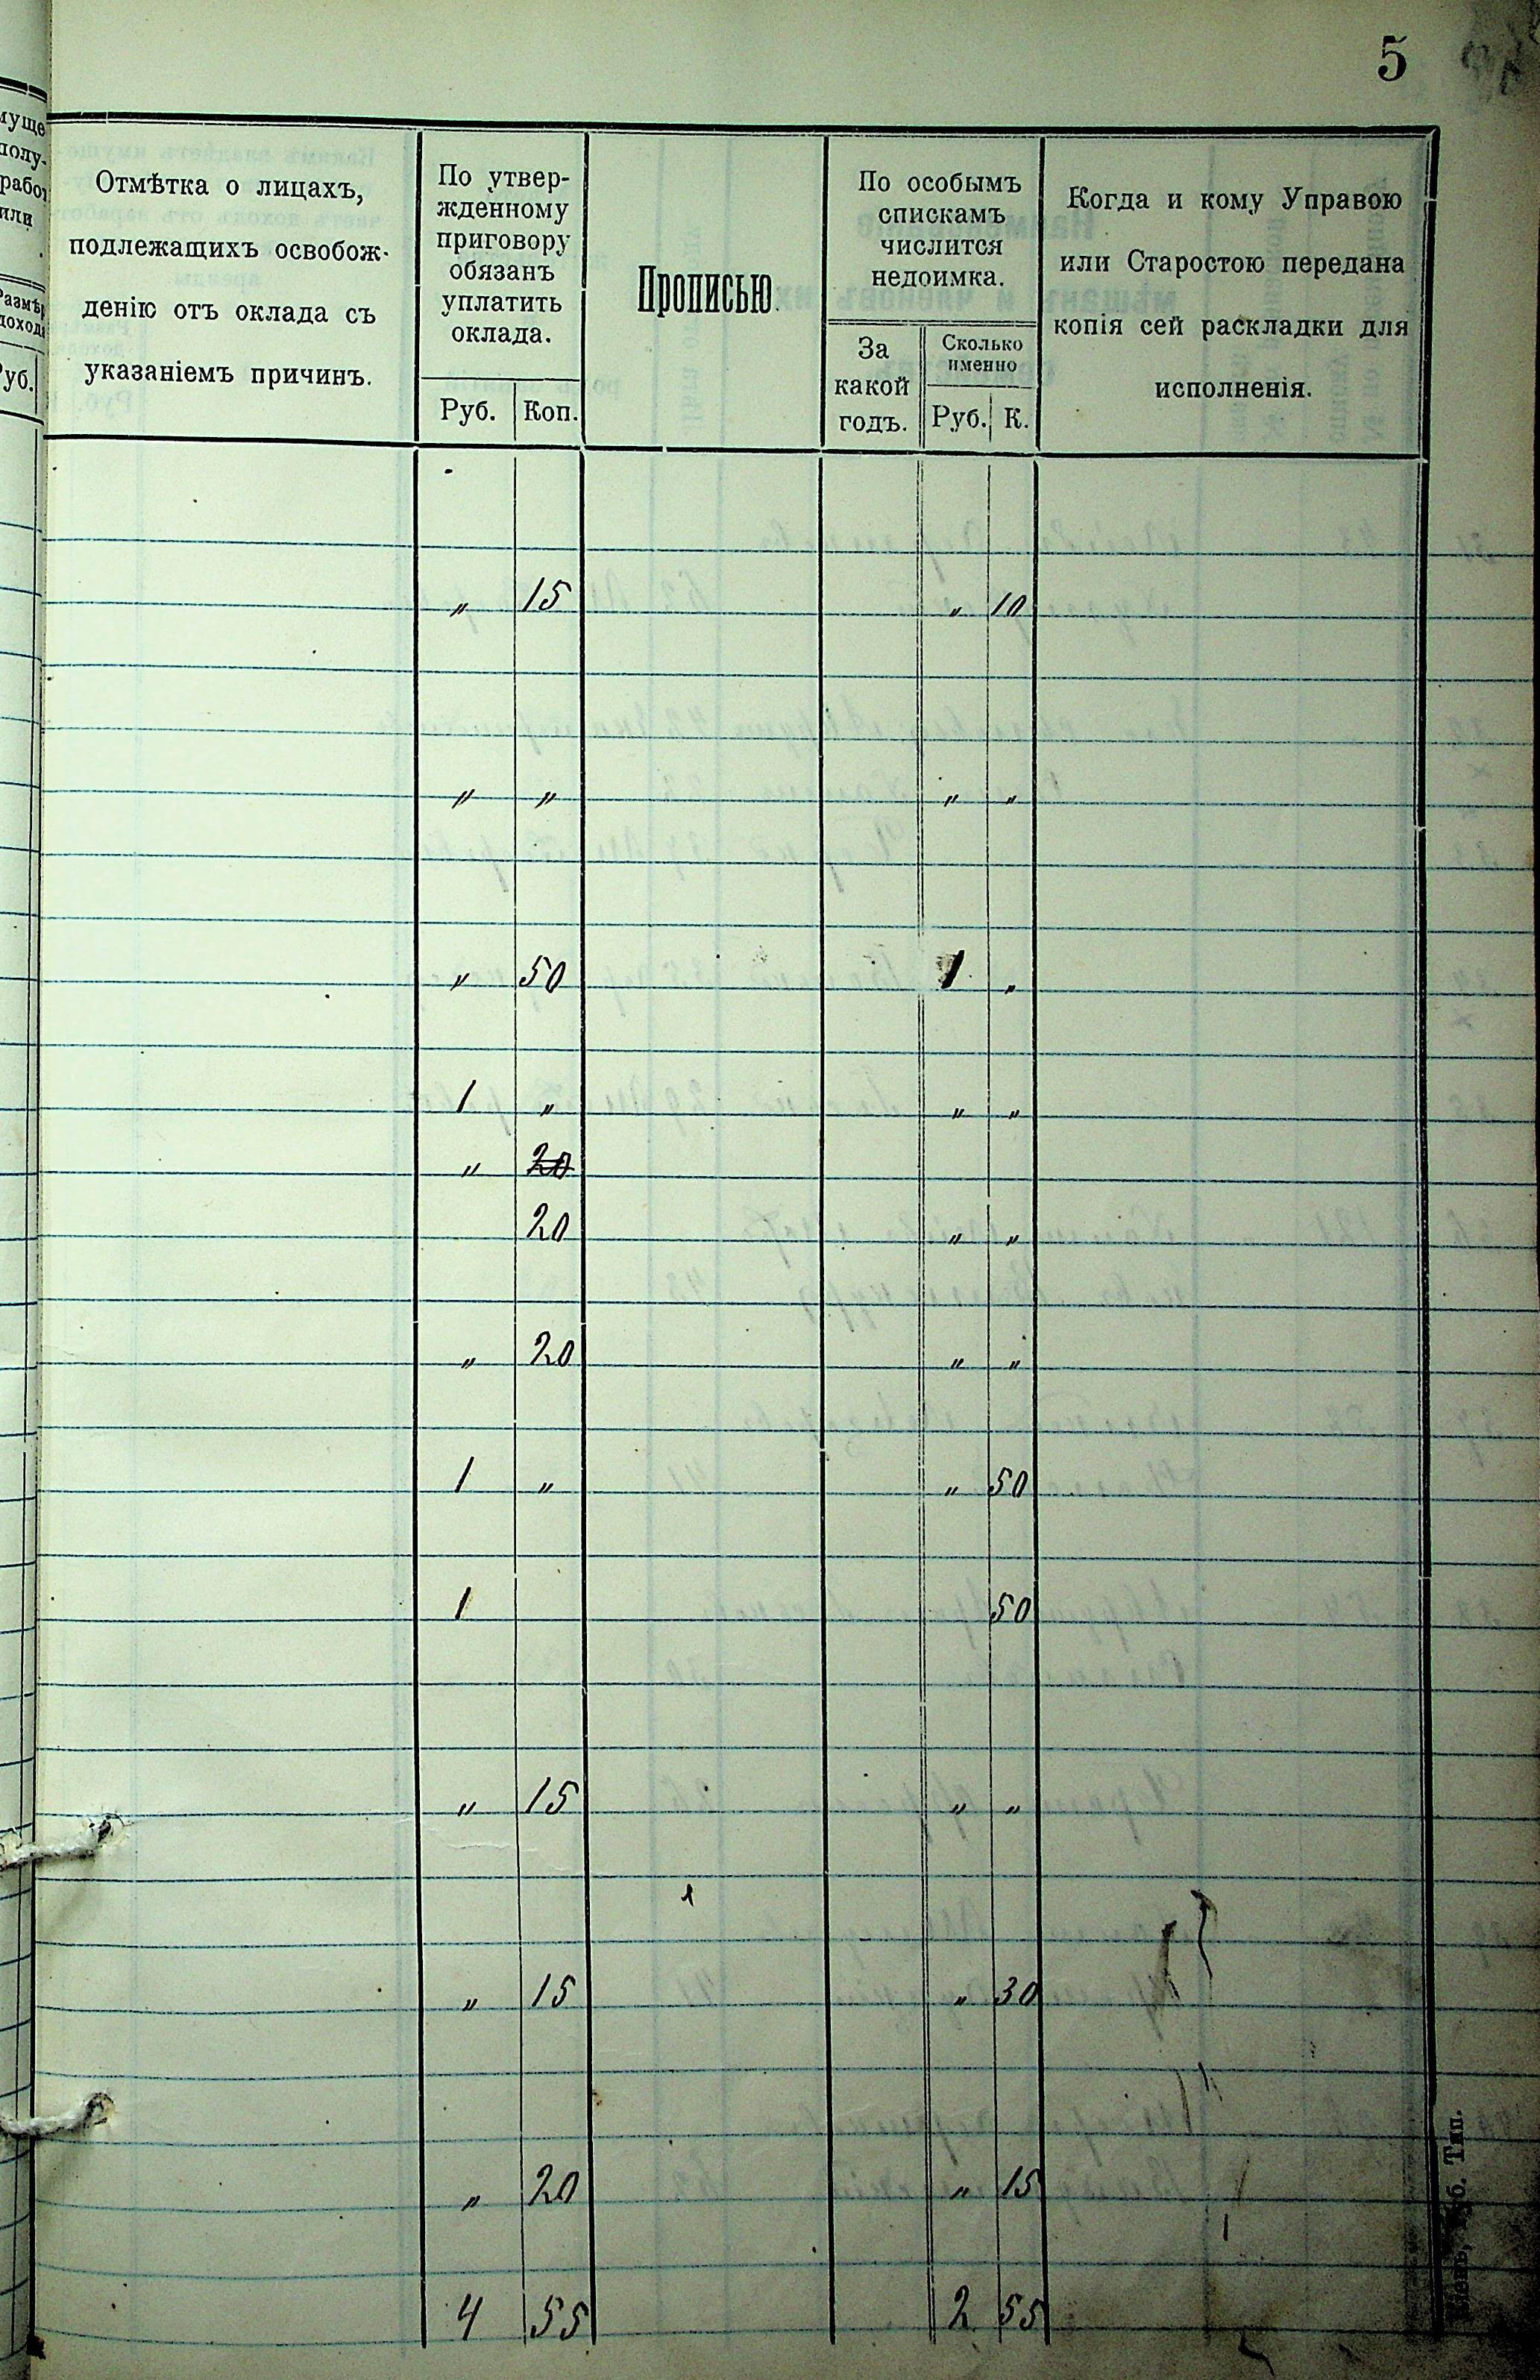 5
муще
полу-
работ
или
Размѣр
доход
Руб.
Отмѣтка о лицахъ,
подлежащихъ освобож-
денію отъ оклада съ
указаніемъ причинъ.
По утвер-
жденному
приговору
обязанъ
уплатить
оклада.
Руб. Коп.
Прописью.
По особымъ
спискамъ
числится
недоимка.
За
какой
годъ.
Сколько
именно
Руб. К.
Когда и кому Управою
или Старостою передана
копія сей раскладки для
исполненія.
„ 15 „ 10
„ „ „ „
„ 50 1 „
1 „ „ „
„ 20
20 „ „
„ 20 „ „
1 „ „ 50
1 50
„ 15 „ „
„ 15 „ 30
„ 20 „ 15
4 55 2 55
Губ. Тип.